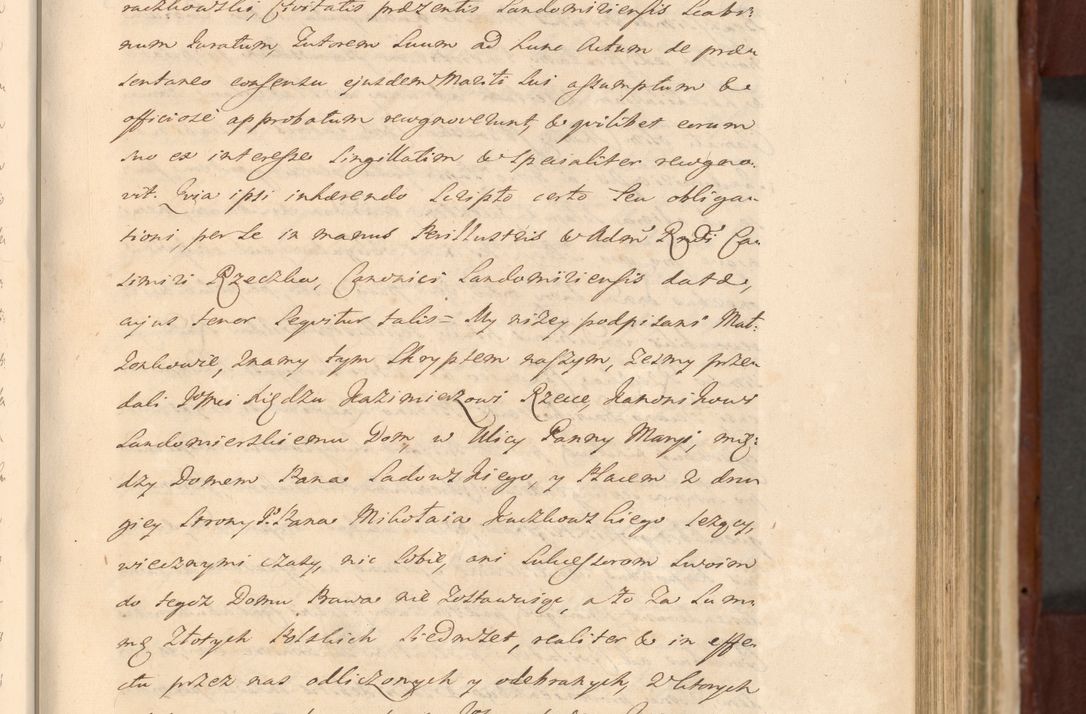 raczkowski, Civitatis præsentis Sandomiriensis Scabi-
num Juratum, Tutorem Suum ad hunc Actum de præ-
sentaneo consensu ejusdem Mariti Sui assumptum &
officiose approbatum recognoverunt, & quilibet eorum
suo ex interesse singillatim & specialiter recogno-
vit. Quia ipsi inhærendo Scripto certo seu obliga-
tioni, per Se in manus Perillustris & Adm Rndi Ca-
simiri Rzeczka, Canonici Sandomiriensis datæ,
cujus tenor sequitur talis = My niżey podpisani Mał-
żonkowie, znamy tym Skryptem naszym, żeśmy prze-
dali Jmci Xiędzu Kazimierzowi Rzecce, Kanonikowi
Sandomierskiemu Dom, w Ulicy Panny Maryi, mię-
dzy Domem Pana Sadowskiego, y Placem z dru-
giey strony P. Pana Mikołaia Kuczkowskiego leżący,
wiecznymi czasy, nic sobie, ani Sukcessorom Swoim
do tegoż Domu Prawa nie zostawuiąc, a to za Sum-
mę Złotych Polskich Siedmset, realiter & in effe-
ctu przez nas odliczonych y odebranych, z których